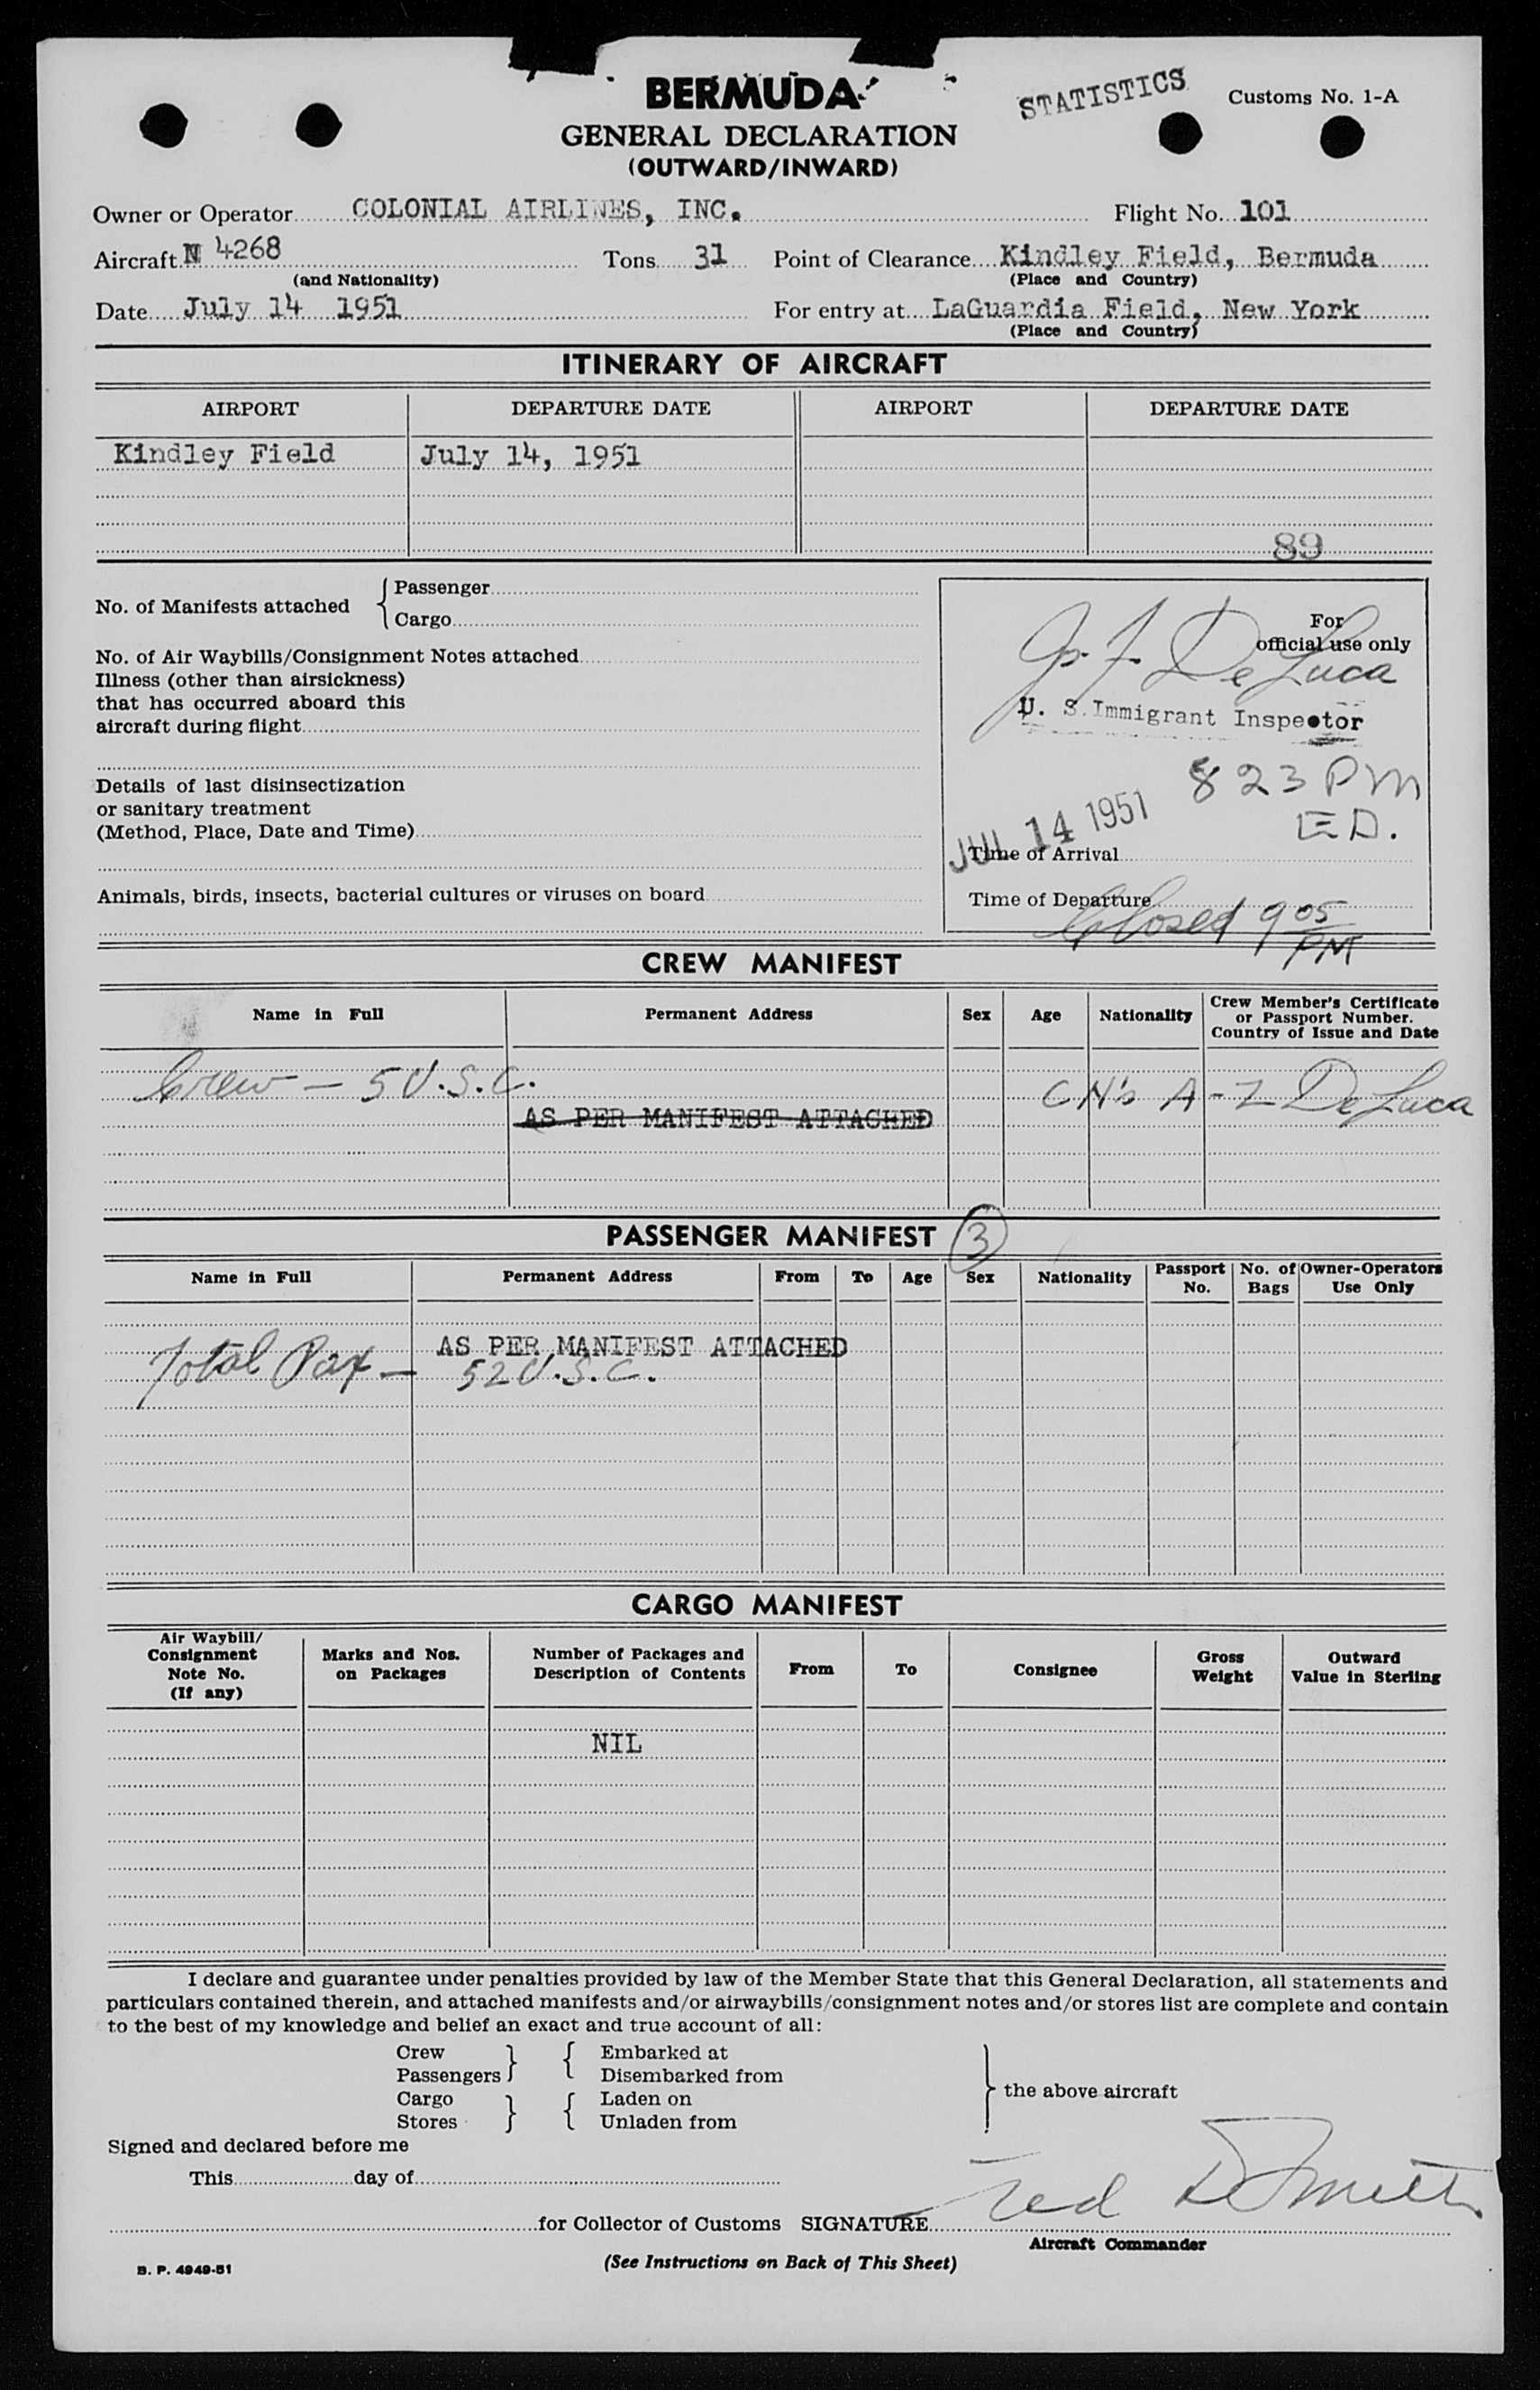 BERMUDA
STATISTICS
Customs No. 1-A
GENERAL DECLARATION
(OUTWARD/INWARD)
Owner or Operator COLONIAL AIRLINES, INC. Flight No. 101
Aircraft N 4268 Tons 31 Point of Clearance Kindley Field, Bermuda
(and Nationality) (Place and Country)
Date July 14 1951 For entry at LaGuardia Field, New York
(Place and Country)
ITINERARY OF AIRCRAFT
AIRPORT DEPARTURE DATE AIRPORT DEPARTURE DATE
Kindley Field July 14, 1951
89
No. of Manifests attached { Passenger
Cargo
No. of Air Waybills/Consignment Notes attached
Illness (other than airsickness)
that has occurred aboard this
aircraft during flight
Details of last disinsectization
or sanitary treatment
(Method, Place, Date and Time)
Animals, birds, insects, bacterial cultures or viruses on board
For
official use only
De Luca
U. S. Immigrant Inspector
823 PM
E D.
JUL 14 1951
Time of Arrival
Time of Departure
Closed 9 05
PM
CREW MANIFEST
Name in Full Permanent Address Sex Age Nationality Crew Member's Certificate
or Passport Number.
Country of Issue and Date
Crew — 5 U.S.C. CN's A-Z De Luca
AS PER MANIFEST ATTACHED
PASSENGER MANIFEST 3
Name in Full Permanent Address From To Age Sex Nationality Passport No. No. of Bags Owner-Operators Use Only
AS PER MANIFEST ATTACHED
Total Pax — 52 U.S.C.
CARGO MANIFEST
Air Waybill/
Consignment
Note No.
(If any)
Marks and Nos.
on Packages
Number of Packages and
Description of Contents
From To Consignee
Gross
Weight
Outward
Value in Sterling
NIL
I declare and guarantee under penalties provided by law of the Member State that this General Declaration, all statements and
particulars contained therein, and attached manifests and/or airwaybills/consignment notes and/or stores list are complete and contain
to the best of my knowledge and belief an exact and true account of all:
Crew } { Embarked at
Passengers Disembarked from
Cargo } { Laden on
Stores Unladen from
} the above aircraft
Signed and declared before me
This day of
for Collector of Customs SIGNATURE Fred D Smith
Aircraft Commander
B. P. 4949-51
(See Instructions on Back of This Sheet)